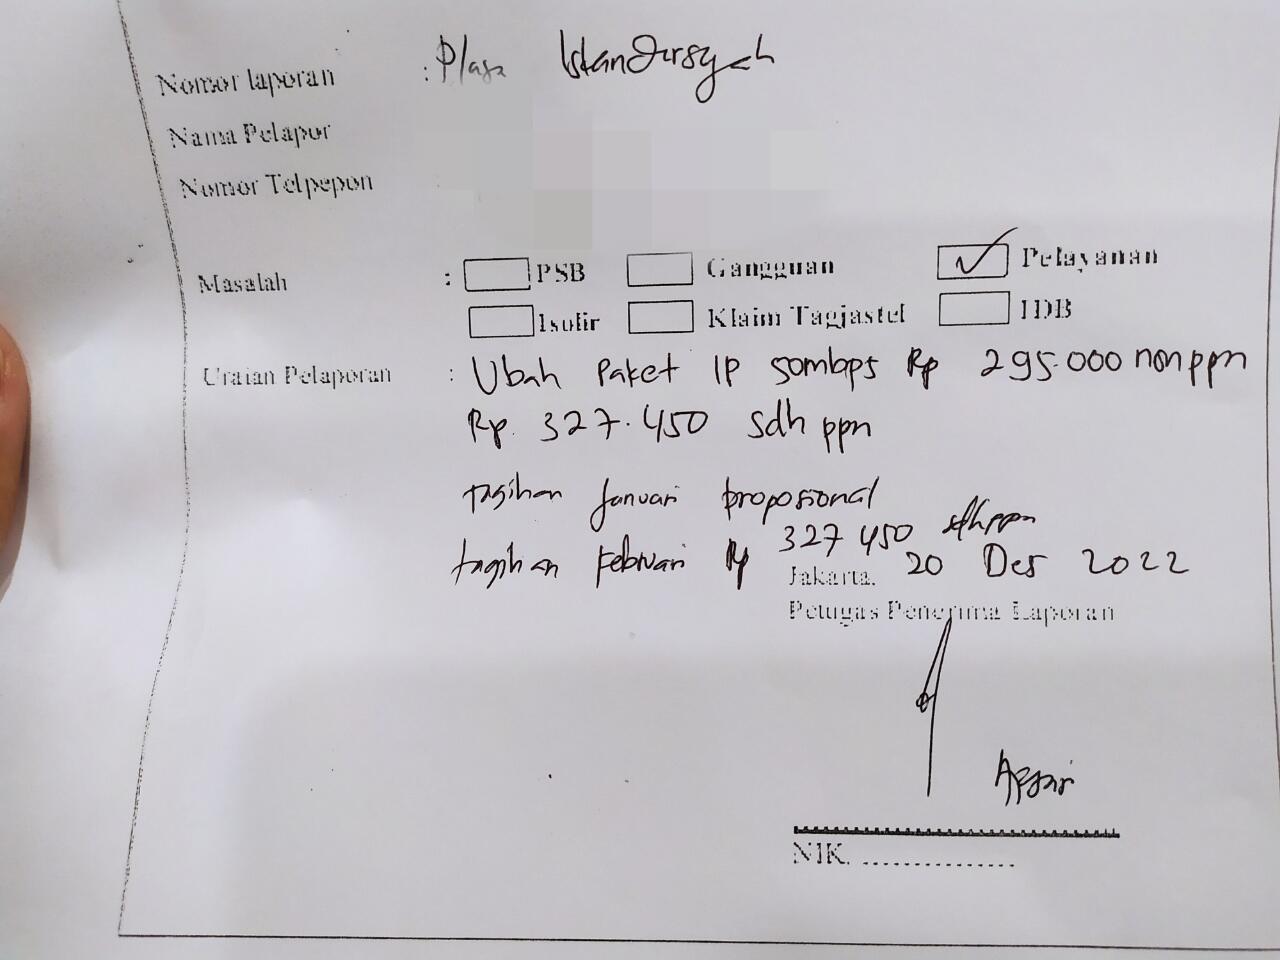 Nomor laporan : Plasa Iskandarsyah
Nama Pelapor
Nomor Telpepon
Masalah : PSB Gangguan Pelayanan
Isolir Klaim Tagjastel IDB
Uraian Pelaporan : Ubah Paket IP 50mbps Rp 295.000 non ppn
Rp. 327.450 sdh ppn
tagihan Januari proposional
tagihan Februari Rp 327 450 sdh ppn
Jakarta. 20 Des 2022
Petugas Penerima Laporan
Apsari
NIK. ................